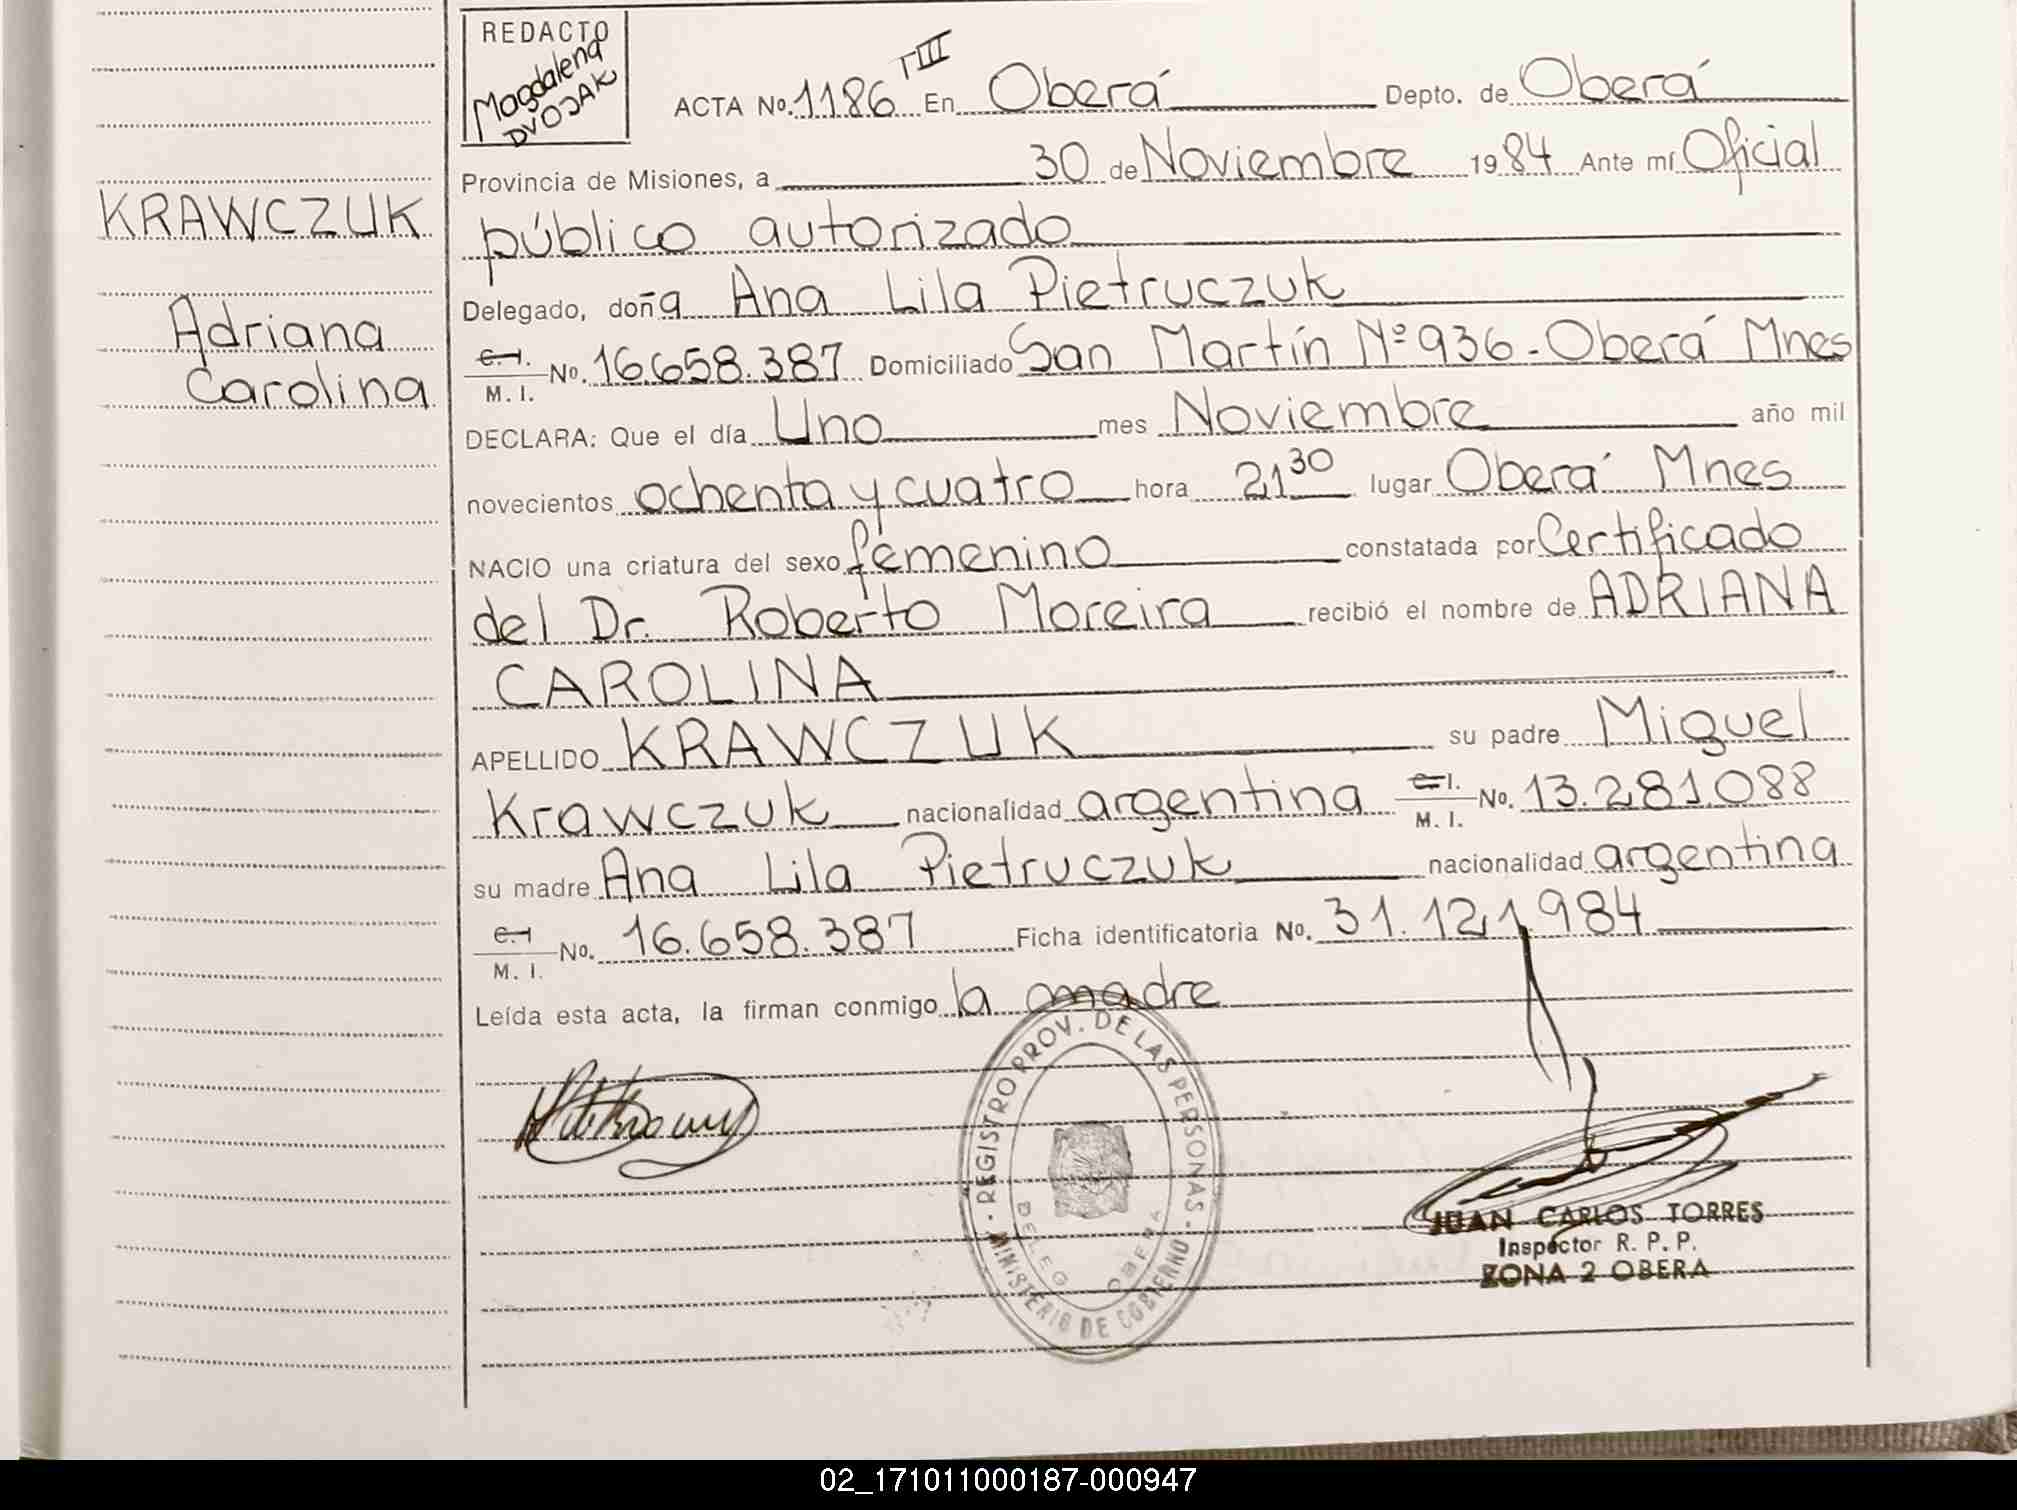 REDACTO
Magdalena
DVOJAK
ACTA No. 1186 TIII En Oberá Depto. de Oberá
Provincia de Misiones, a 30 de Noviembre 1984 Ante mí Oficial
KRAWCZUK
público autorizado
Adriana
Carolina
Delegado, doña Ana Lila Pietruczuk
C.I. M. I. No. 16.658.387 Domiciliado San Martín Nº 936 - Oberá Mnes
DECLARA: Que el día Uno mes Noviembre año mil
novecientos ochenta y cuatro hora 21 30 lugar Oberá Mnes
NACIO una criatura del sexo femenino constatada por Certificado
del Dr. Roberto Moreira recibió el nombre de ADRIANA
CAROLINA
APELLIDO KRAWCZUK su padre Miguel
Krawczuk nacionalidad argentina C.I. M. I. No. 13.281.088
su madre Ana Lila Pietruczuk nacionalidad argentina
C.I. M. I. No. 16.658.387 Ficha identificatoria No. 31.121.984
Leída esta acta, la firman conmigo la madre
REGISTRO PROV. DE LAS PERSONAS
MINISTERIO DE GOBIERNO
DELEG OBERA
JUAN CARLOS TORRES
Inspector R. P. P.
ZONA 2 OBERA
02_171011000187-000947